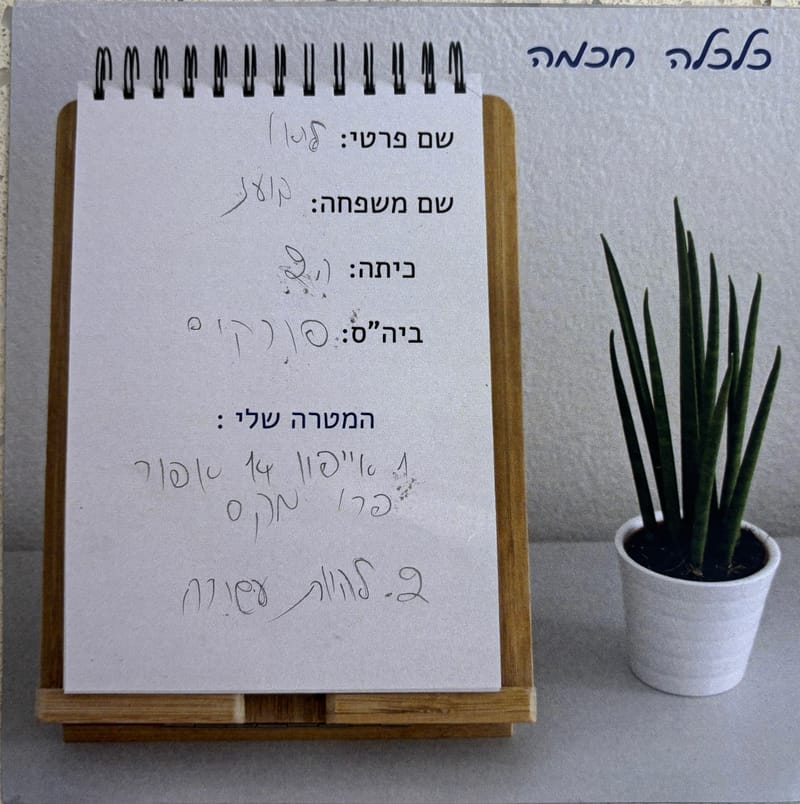 כלכלה חכמה
שם פרטי: ליאו
שם משפחה: בועז
כיתה: ה.2
ביה"ס: פורקים
המטרה שלי :
1 אייפון 14 אפור
פרו מקס
2. להיות עשירה